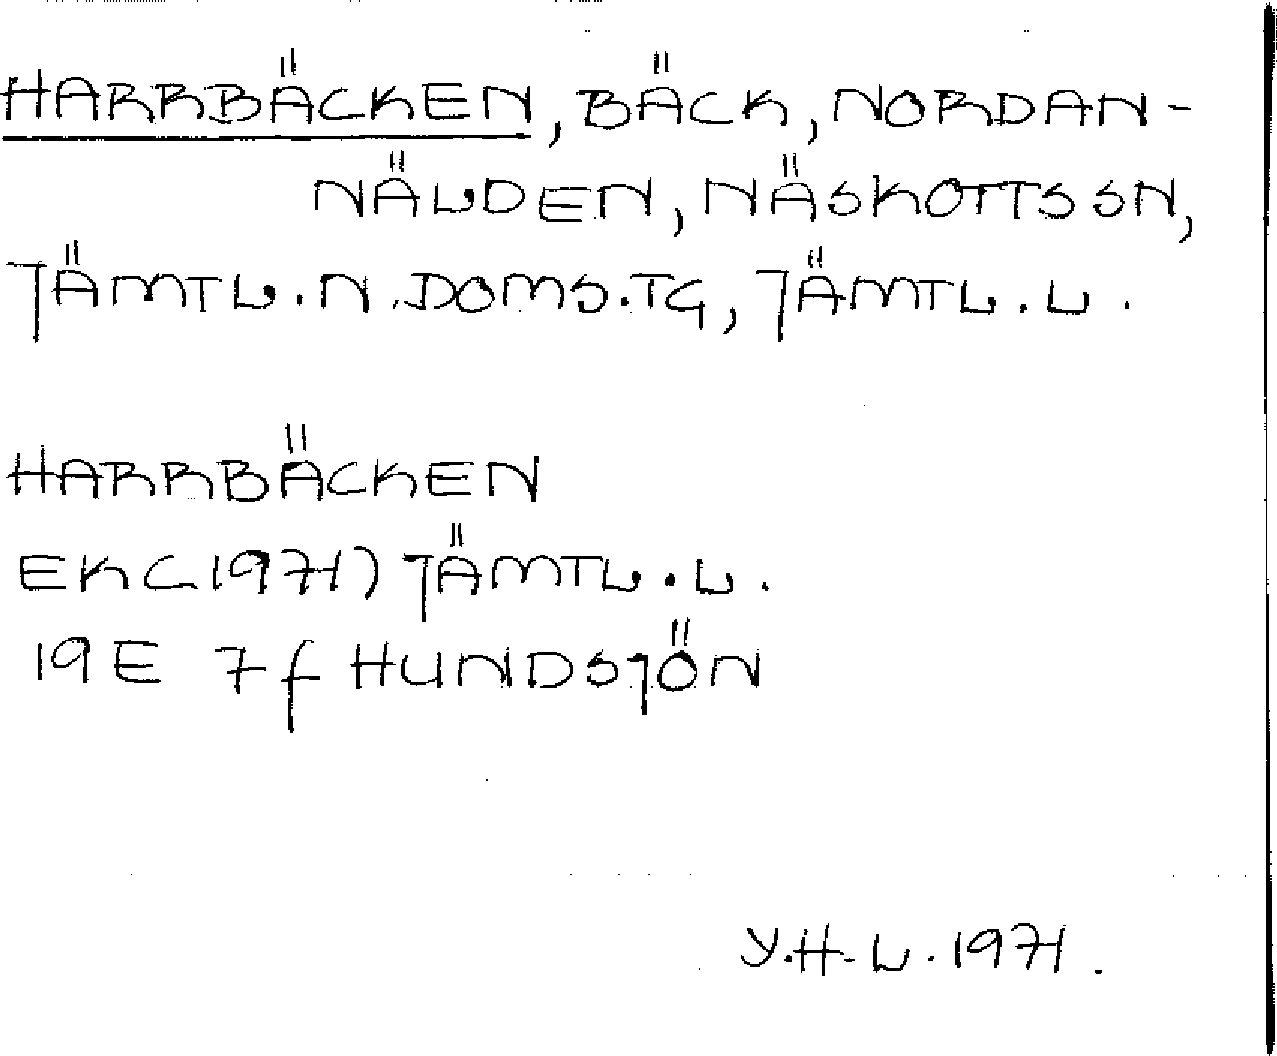 HARRBÄCKEN, BÄCK, NORDAN-
NÄLDEN, NÄSKOTTS SN,
JÄMTL.N.DOMS.TG, JÄMTL.L.
HARRBÄCKEN
EK(1971) JÄMTL.L.
19E 7f HUNDSJÖN
Y.H-L.1971.